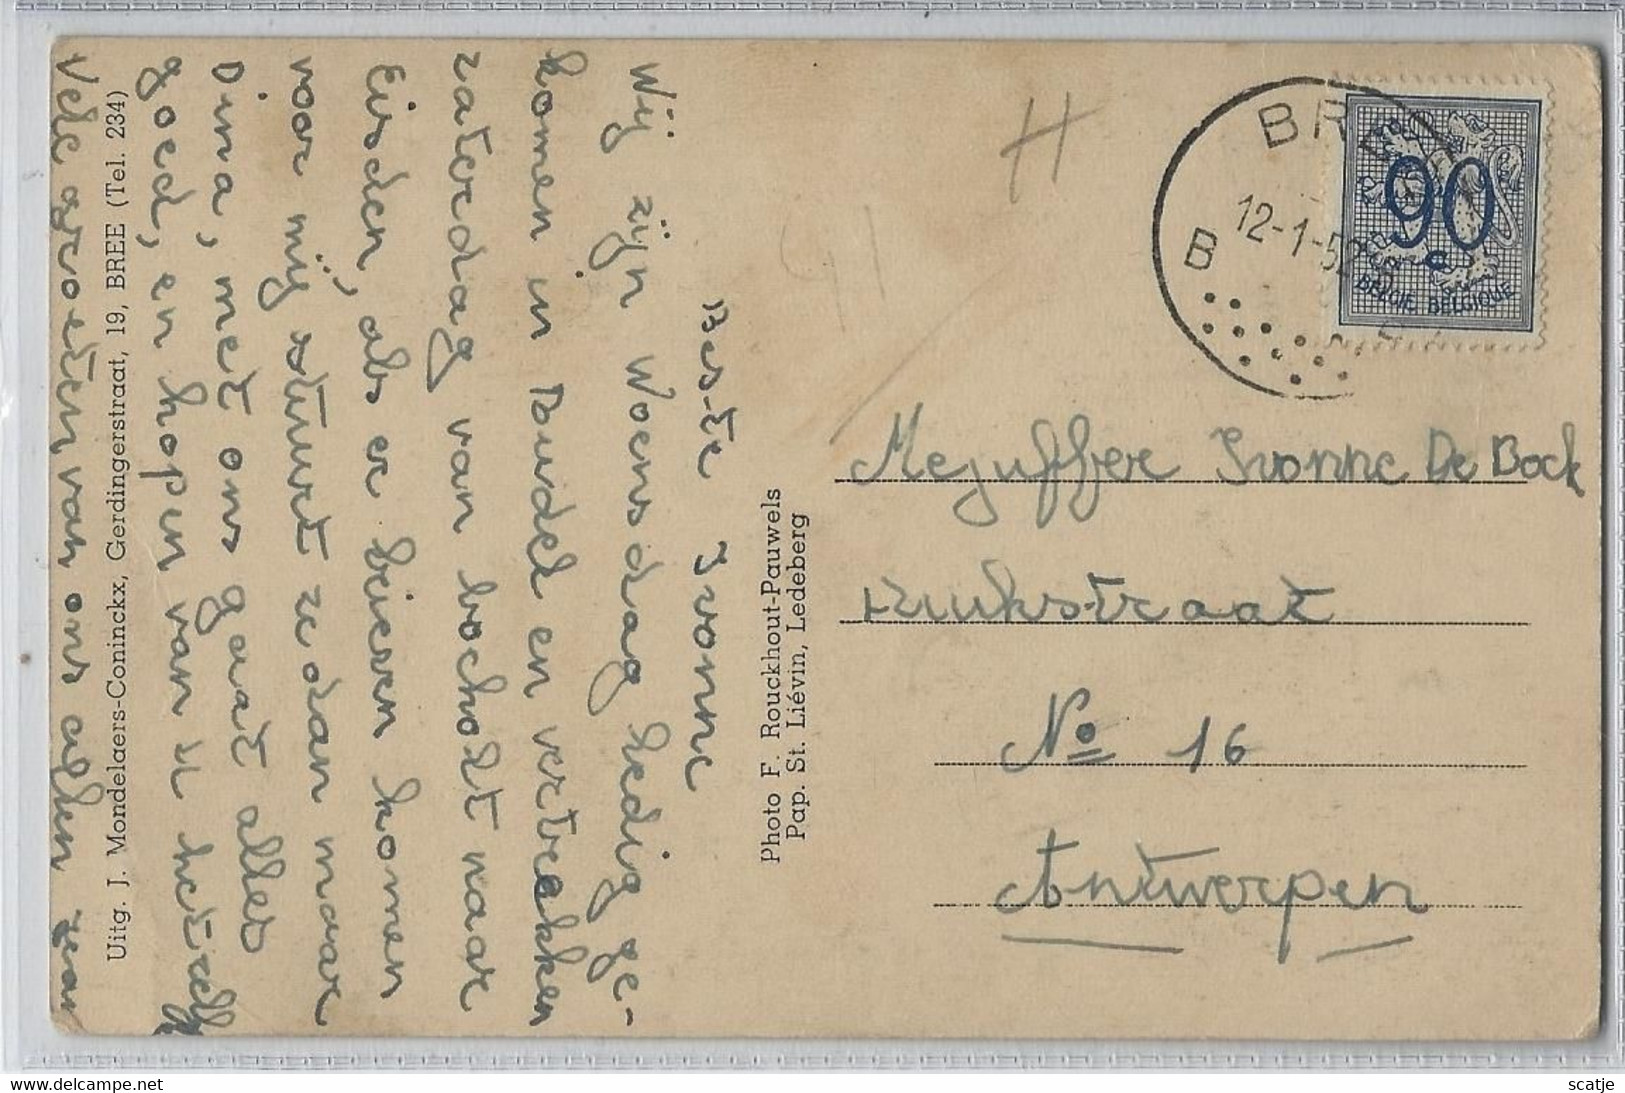 Beste Ivonne
Wij zijn Woensdag ledig ge-
komen in Budel en vertrekken
zaterdag van bocholt naar
Eisden, als er brieven komen
voor mij stuurt ze dan maar
Dina, met ons gaat alles
goed, en hopen van u hetzelfde
Vele groeten van ons allen
Uitg. J. Mondelaers-Coninckx, Gerdingerstraat, 19, BREE (Tel. 234)
Photo F. Rouckhout-Pauwels
Pap. St. Liévin, Ledeberg
BREE
B
12-1-52
90 c
BELGIE BELGIQUE
H
Mejuffer Ivonne De Bock
No 16
Antwerpen
delcampe.net
scatje